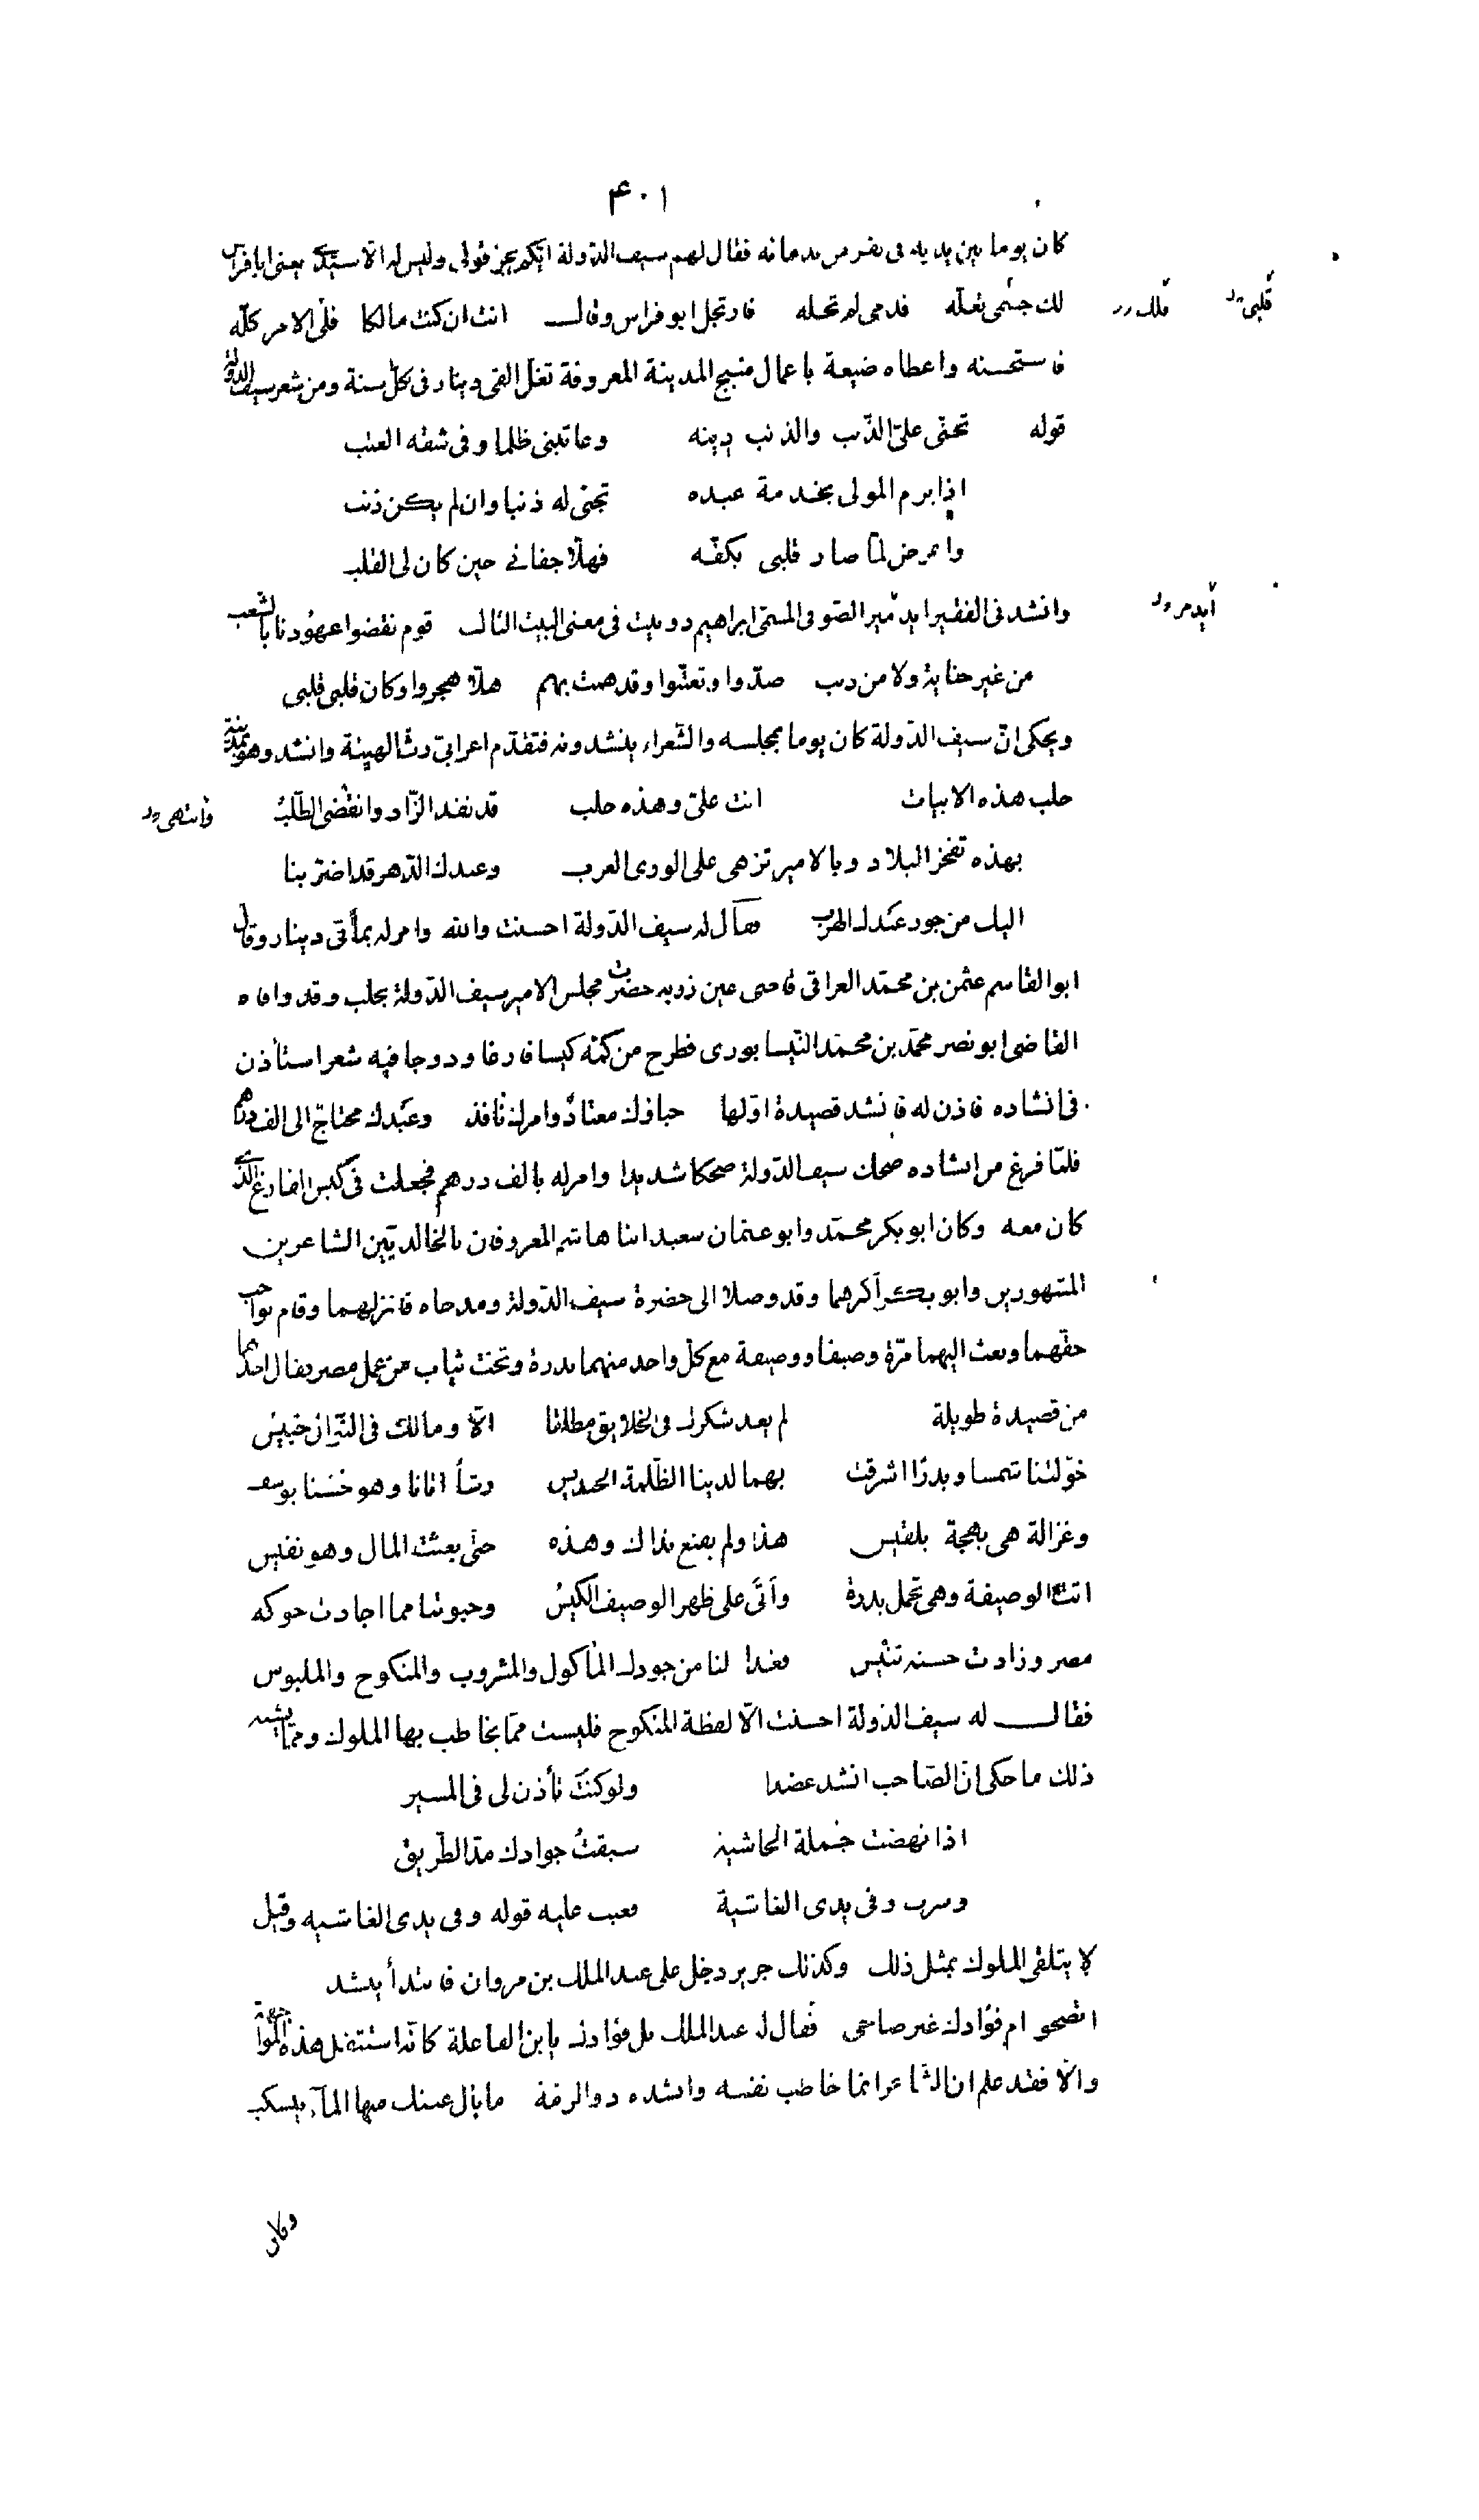 ٤٠١
كان يوما بين يديه فى نفر من ندمائه فقال لهم سيف الدولة ايّكم يجيز قولى وليس له الّا سيّدى يعنى ابا فراس
لك جسمى تعلّه فدمى لم تحله فارتجل ابو فراس وقال انت ان كنت مالكا فلى الامر كلّه
قلبى
فاستحسنه واعطاه ضيعة باعمال منبج المدينة المعروفة تغلّ الفى دينار فى كلّ سنة ومن شعر سيف الدولة
قوله تجنّى علىّ الذّنب والذنب ذينه وعاتبنى ظلما وفى شقه العتب
اذا برم المولى بخدمة عبده تجنّى له ذنبا وان لم يكن ذنب
واعرض لمّا صار قلبى بكفّه فهلّا جفانى حين كان لى القلب
وانشدنى الفقير ايدمير الصّوفى المسمّى ابراهيم دوبيت فى معنى البيت الثالث قوم نقضوا عهودنا بالشعب
أيدمر
من غير جناية ولا من ذنب صدّوا وتعتّبوا وقد همت بهم هلّا هجروا وكان قلبى قلبى
ويحكى انّ سيف الدّولة كان يوما بمجلسه والشّعراء ينشدونه فتقدّم اعرابىّ رثّ الهيئة وانشد وهو بمدينة
حلب هذه الابيات انت علىّ وهذه حلب قد نفد الزّاد وانقضى الطّلب
وانتهى
بهذه تفخر البلاد وبالامير تزهى على الورى العرب وعبدك الدّهر قد اضرّ بنا
اليك من جور عبدك الهرب فقال له سيف الدّولة احسنت والله وامر له بمأتى دينار وقال
ابو القاسم عثمن بن محمّد العراقى قاضى عين زربه حضرت مجلس الامير سيف الدّولة بحلب وقد وافاه
القاضى ابو نصر محمّد بن محمّد النّيسابورى فطرح من كمّه كيسا فارغا ودرجا فيه شعر استأذن
فى انشاده فاذن له فانشد قصيدة اوّلها حباؤك معتاد وامرك نافذ وعبدك محتاج الى الف درهم
فلمّا فرغ من انشاده ضحك سيف الدّولة ضحكا شديدا وامر له بالف درهم فجعلت فى كيس الفارغ الّذى
كان معه وكان ابو بكر محمّد وابو عثمان سعيد ابنا هاشم المعروفان بالخالديّين الشاعرين
المشهورين وابو بكر اكبرهما وقد وصلا الى حضرة سيف الدّولة ومدحاه فانزلهما وقام بواجب
حقهما وبعث اليهما مرّة وصيفا ووصيفة مع كلّ واحد منهما بدرة وتخت ثياب من عمل مصر فقال احدهما
من قصيدة طويلة لم يعد شكرك فى الخلايق مطلقا الّا ومالك فى النّوال حبيس
خوّلتنا شمسا وبدرًا اشرقت بهما لدينا الظّلمة الحنديس رشأ اتانا وهو حسنا يوسف
وغزالة هى بهجة بلقيس هذا ولم يقنع بذاك وهذه حتى بعثت المال وهو نفيس
اتت الوصيفة وهى تحمل بدرة وأتى على ظهر الوصيف الكيس وحبوتنا مما اجادت حوكه
مصر وزادت حسنه تنّيس فغدا لنا من جودك المأكول والمشروب والمنكوح والملبوس
فقال له سيف الدولة احسنت الّا لفظة المنكوح فليست ممّا يخاطب بها الملوك وممّا يشبه
ذلك ما حكى انّ الصّاحب انشد عضدا ولو كنت تأذن لى فى المسير
اذا نهضت جملة الحاشية سبقت جوادك مدّ الطّريق
وسرت وفى يدى الغاشية فعيب عليه قوله وفى يدى الغاشيه وقيل
لا يتلقى الملوك بمثل ذلك وكذلك جرير دخل على عبد الملك بن مروان فابتدأ ينشد
اتصحو ام فؤادك غير صاحى فقال له عبد الملك بل فؤادك يا ابن الفاعلة كانّه استثقل هذه المواجهة
والّا فقد علم ان الشّاعر انما خاطب نفسه وانشده ذو الرمّة ما بال عينك منها المآء ينسكب
وكان